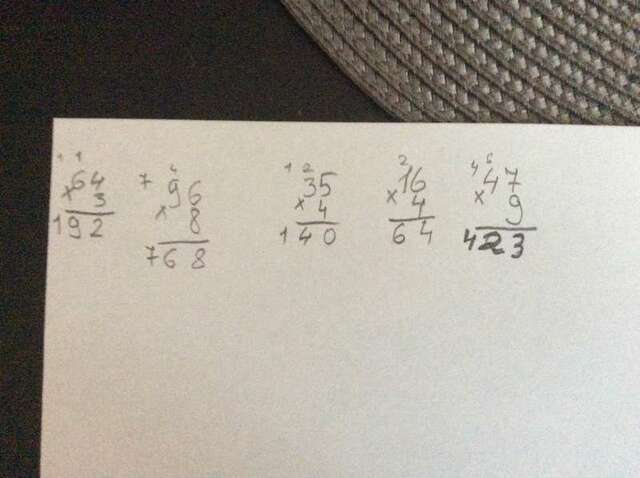 1 1
64
× 3
192
7 4
96
× 8
768
1 2
35
× 4
140
2
16
× 4
64
4 6
47
× 9
423